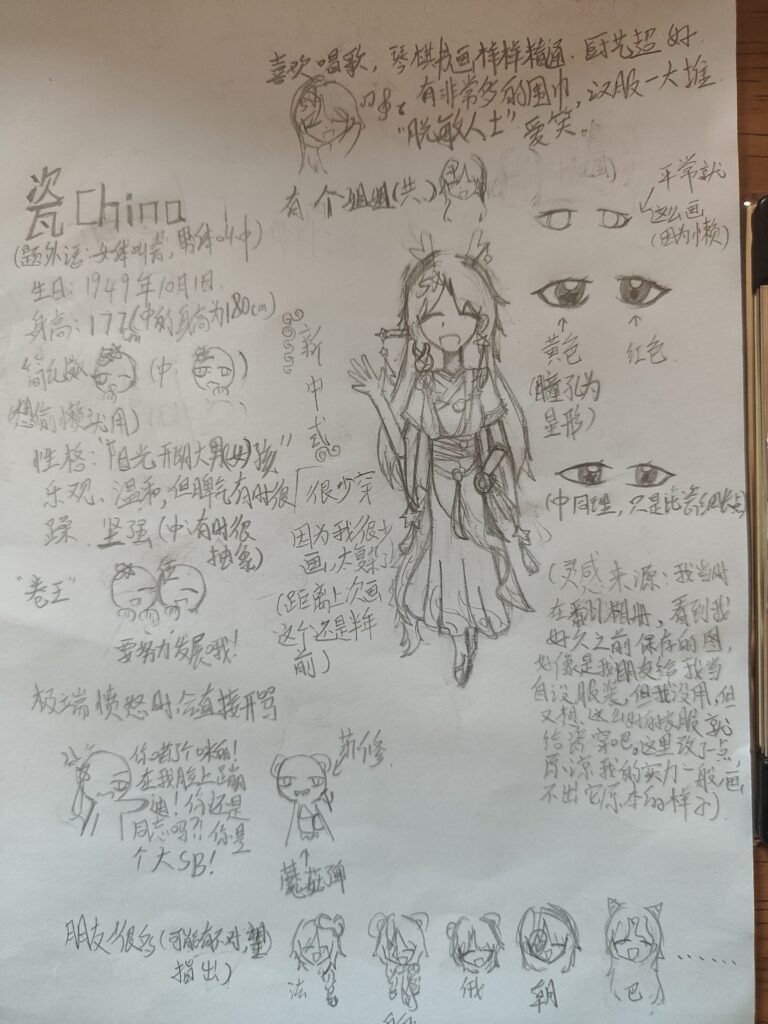 喜欢唱歌，琴棋书画样样精通，厨艺超好
有非常多的围巾，汉服一大堆
“脱敏人士”爱笑。
有个姐姐(共)
平常就
这么画
(因为懒)
瓷China
(题外话:女体叫瓷，男体叫中)
生日：1949年10月1日
身高：177(中的身高为180cm)
简化版
(中:
)
(想偷懒就用)
性格：“阳光开朗大男(女)孩”
乐观、温和，但脾气有时很
躁 坚强(中:有时很
抽象)
新中式
很少穿
因为我很少
画，太复杂了
(距离上次画
这个还是半年
前)
黄色
红色
(瞳孔为
星形)
(中同理，只是比瓷的
“卷王”
要努力发展哦！
(灵感来源：我当时
在翻相册，看到我
好久之前保存的图，
好像是我朋友给我当
自设服装，但我没用，但
又想，这么好的衣服就
给瓷穿吧。这里改了一点，
原谅我的实力一般，画
不出它原本的样子)
极端愤怒时会直接开骂
在我脸上蹦
迪！你还是
同志吗？！你是
个大SB！
苏修
蘑菇弹
朋友很多(可能有不对，望
指出)
法
俄
朝
巴
……